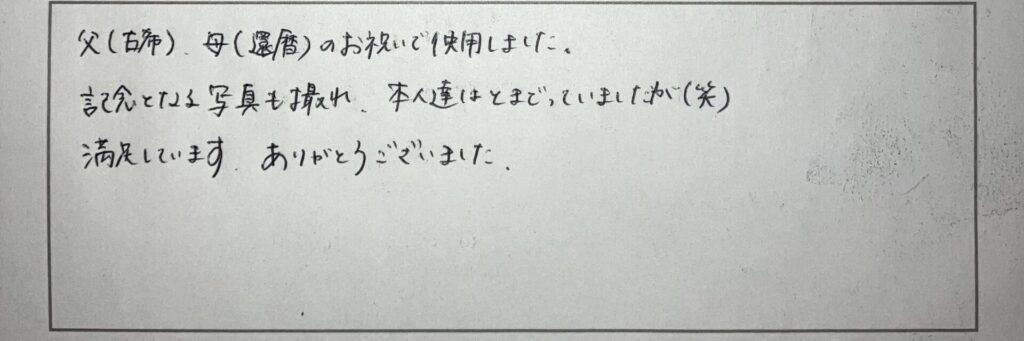 父(古希)、母(還暦)のお祝いで使用しました。
記念となる写真も撮れ、本人達はとまどっていましたが(笑)
満足しています。ありがとうございました。